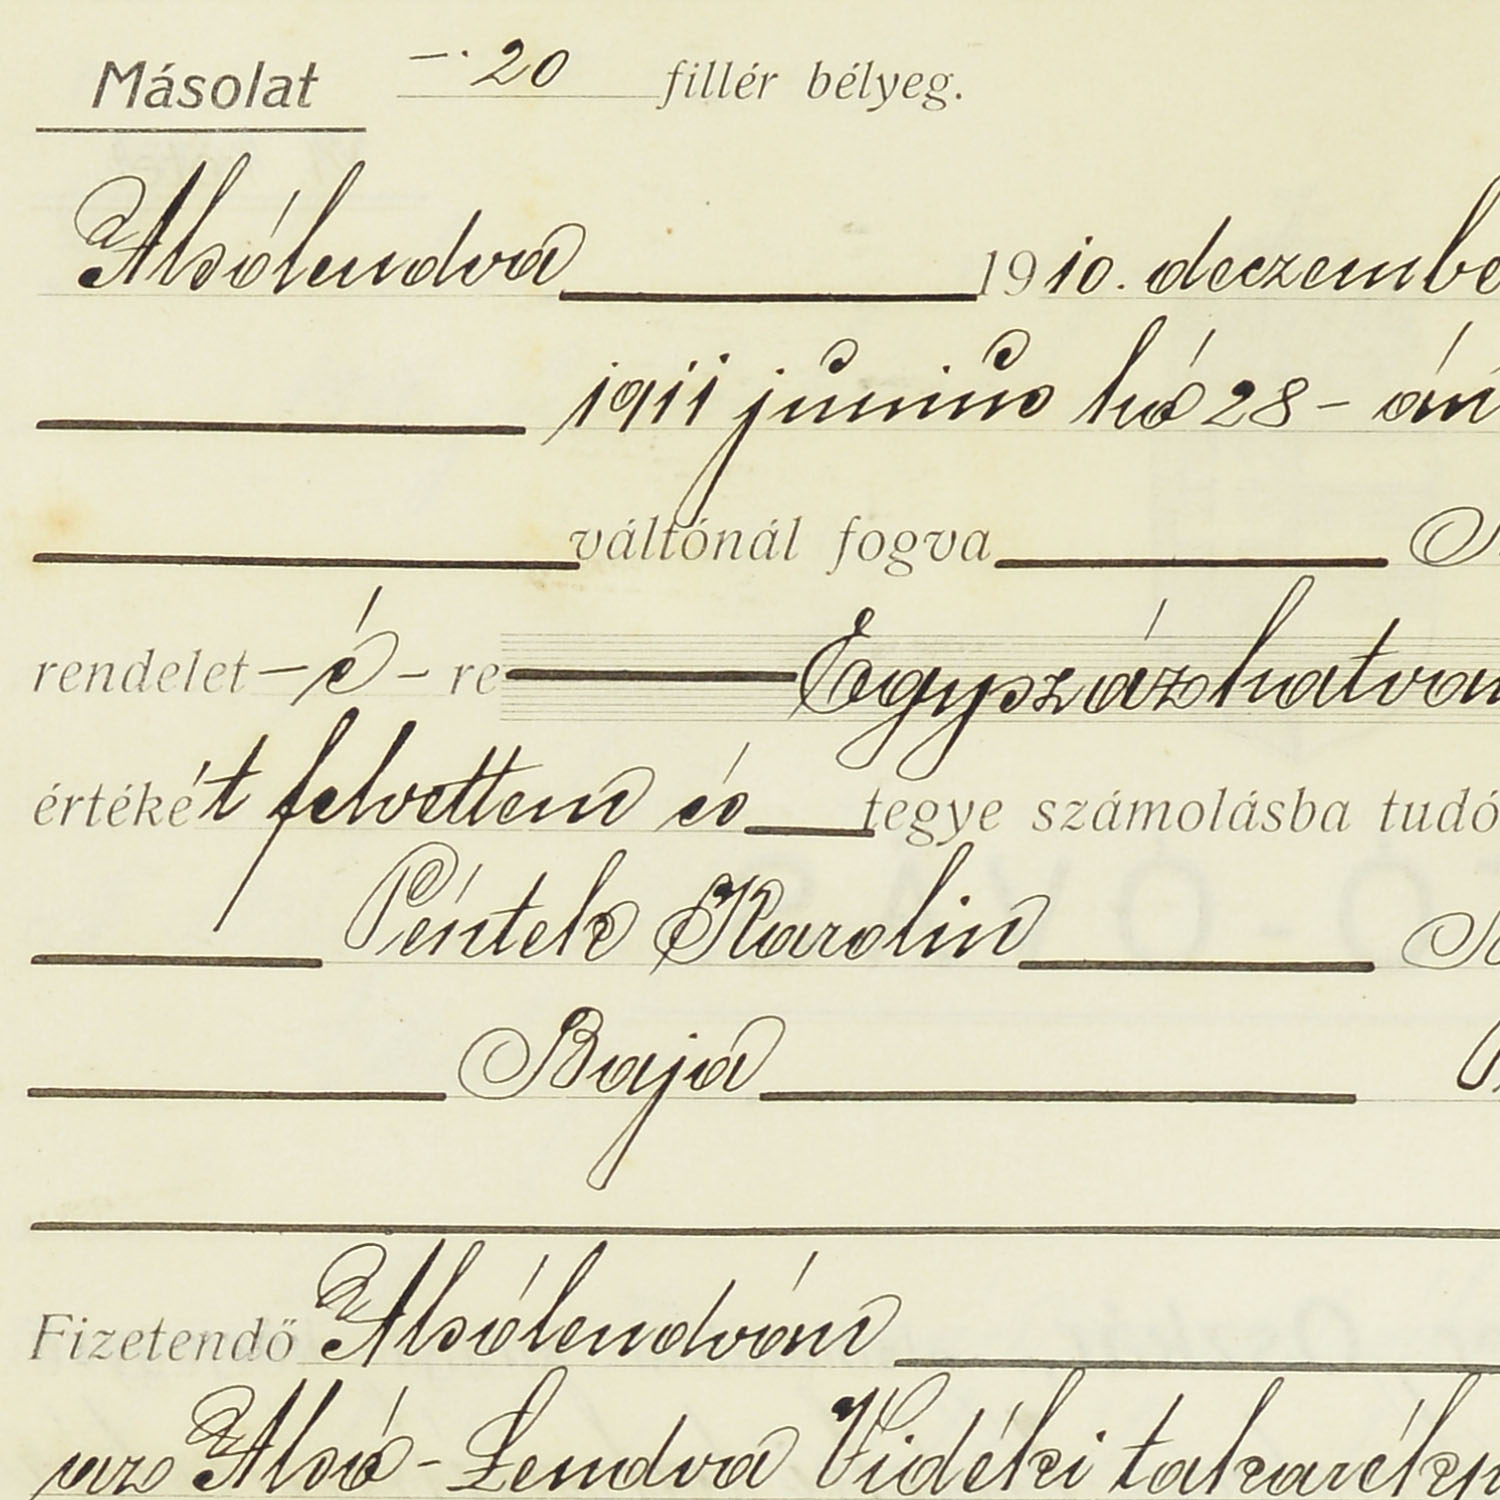 Másolat —·20 fillér bélyeg.
Alsólendva 1910. deczembe
1911 június hó 28 - án
váltónál fogva
rendelet - é - re Egyszázhatvan
értékét felvettem és tegye számolásba tudó
Péntek Karolin
Baja
Fizetendő Alsólendván
az Alsó - Lendva Vidéki takarékp